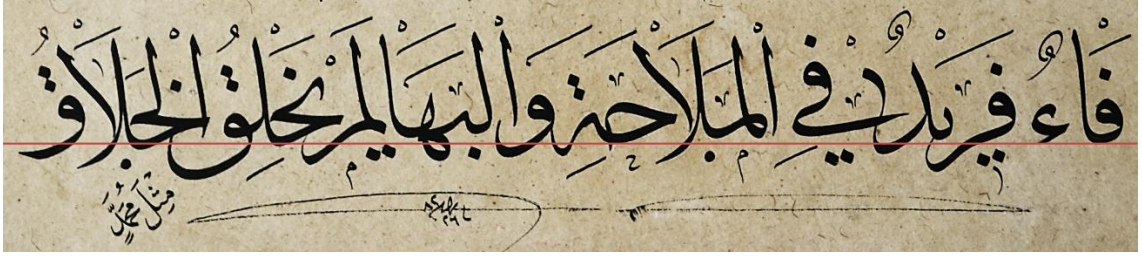 فَاءُ فَرِيْدٌ فِي الْمَلَاحَةِ وَالْبَهَا لَمْ يَخْلُقِ الْخَلَّاقُ
مِثْلَ مُحَمَّدٍ